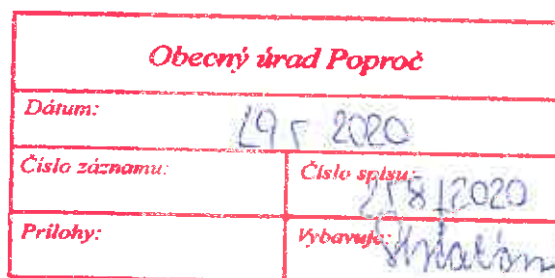 Obecný úrad Poproč
Dátum: 2020
Číslo záznamu: Číslo spisu:
258/2020
Prílohy: Vybavuje: